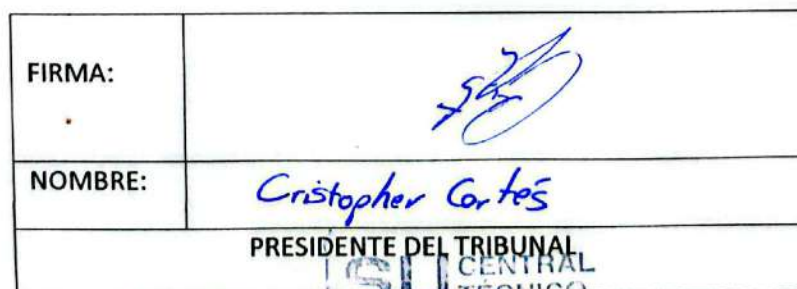 FIRMA:
NOMBRE: Cristopher Cortés
PRESIDENTE DEL TRIBUNAL
ISU CENTRAL
TÉCNICO